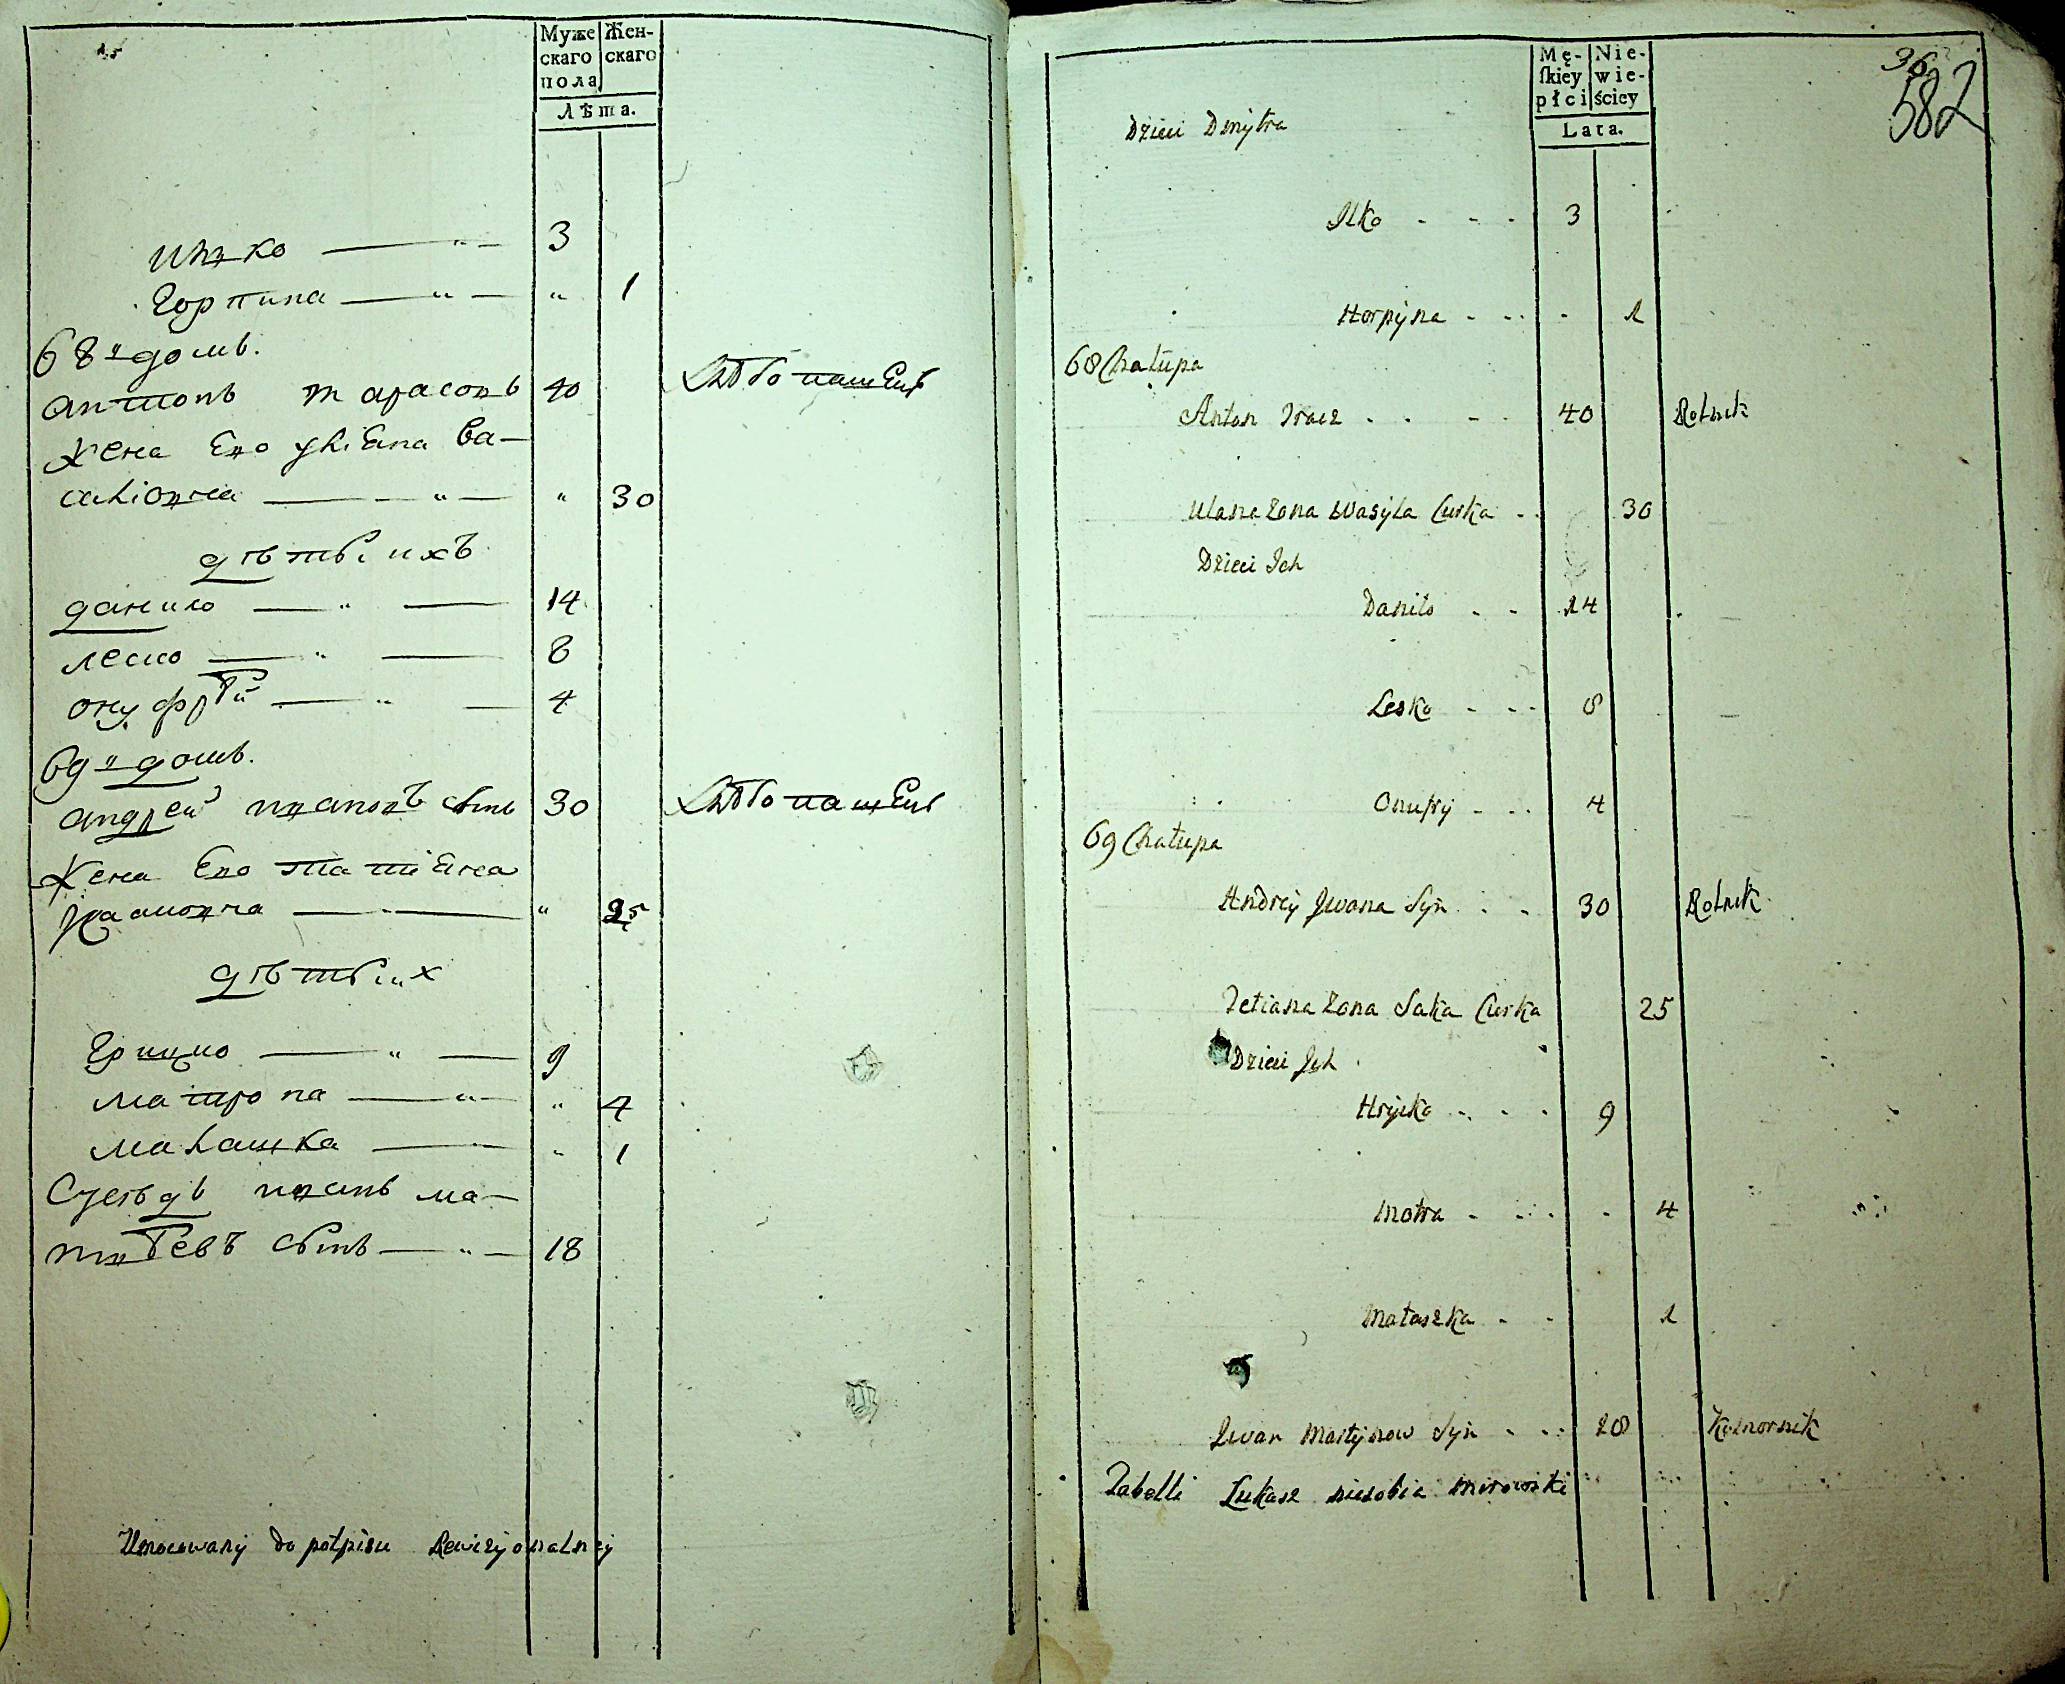 Муже
скаго
пола
Жен-
скаго
Лѣта.
3
Горпина 1
68 й домъ.
Антонъ тарасовъ 40 Хлѣбопашецъ
Жена Его улiяна Ва-
силiовна 30
дѣти ихъ
данило 14
леско 8
онуфрѣй 4
69 й домъ.
андрей ивановъ сынъ 30 Хлѣбопашецъ
Жена Его татiяна
25
дѣти их
Грицко 9
матрона 4
малашка 1
Сусѣдъ иванъ ма-
сынъ 18
Umocowany do potpisu Rewizyonalney
Mę-
ſkiey
płci
Nie-
wie-
ściey
Lata.
36
582
Dzieci Dmytra
Ilko 3
Horpyna 1
68 Chałupa
Anton 40 Rolnik
Ulana Zona Wasyla Curka 30
Dzieci Ich
Daniło 14
Lesko 8
Onufry 4
69 Chałupa
Andrey Jwana Syn 30 Rolnik
Tetiana Zona Saka Curka 25
Dzieci Jch
Hrycko 9
Motra 4
Małaszka 1
Jwan Martynow Syn 18 Komornik
Tabelli Łukasz